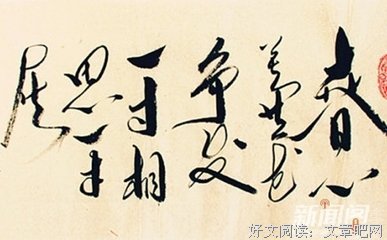 春心
莫共花
争发
一寸相
思一寸
灰
好文阅读：文章吧网